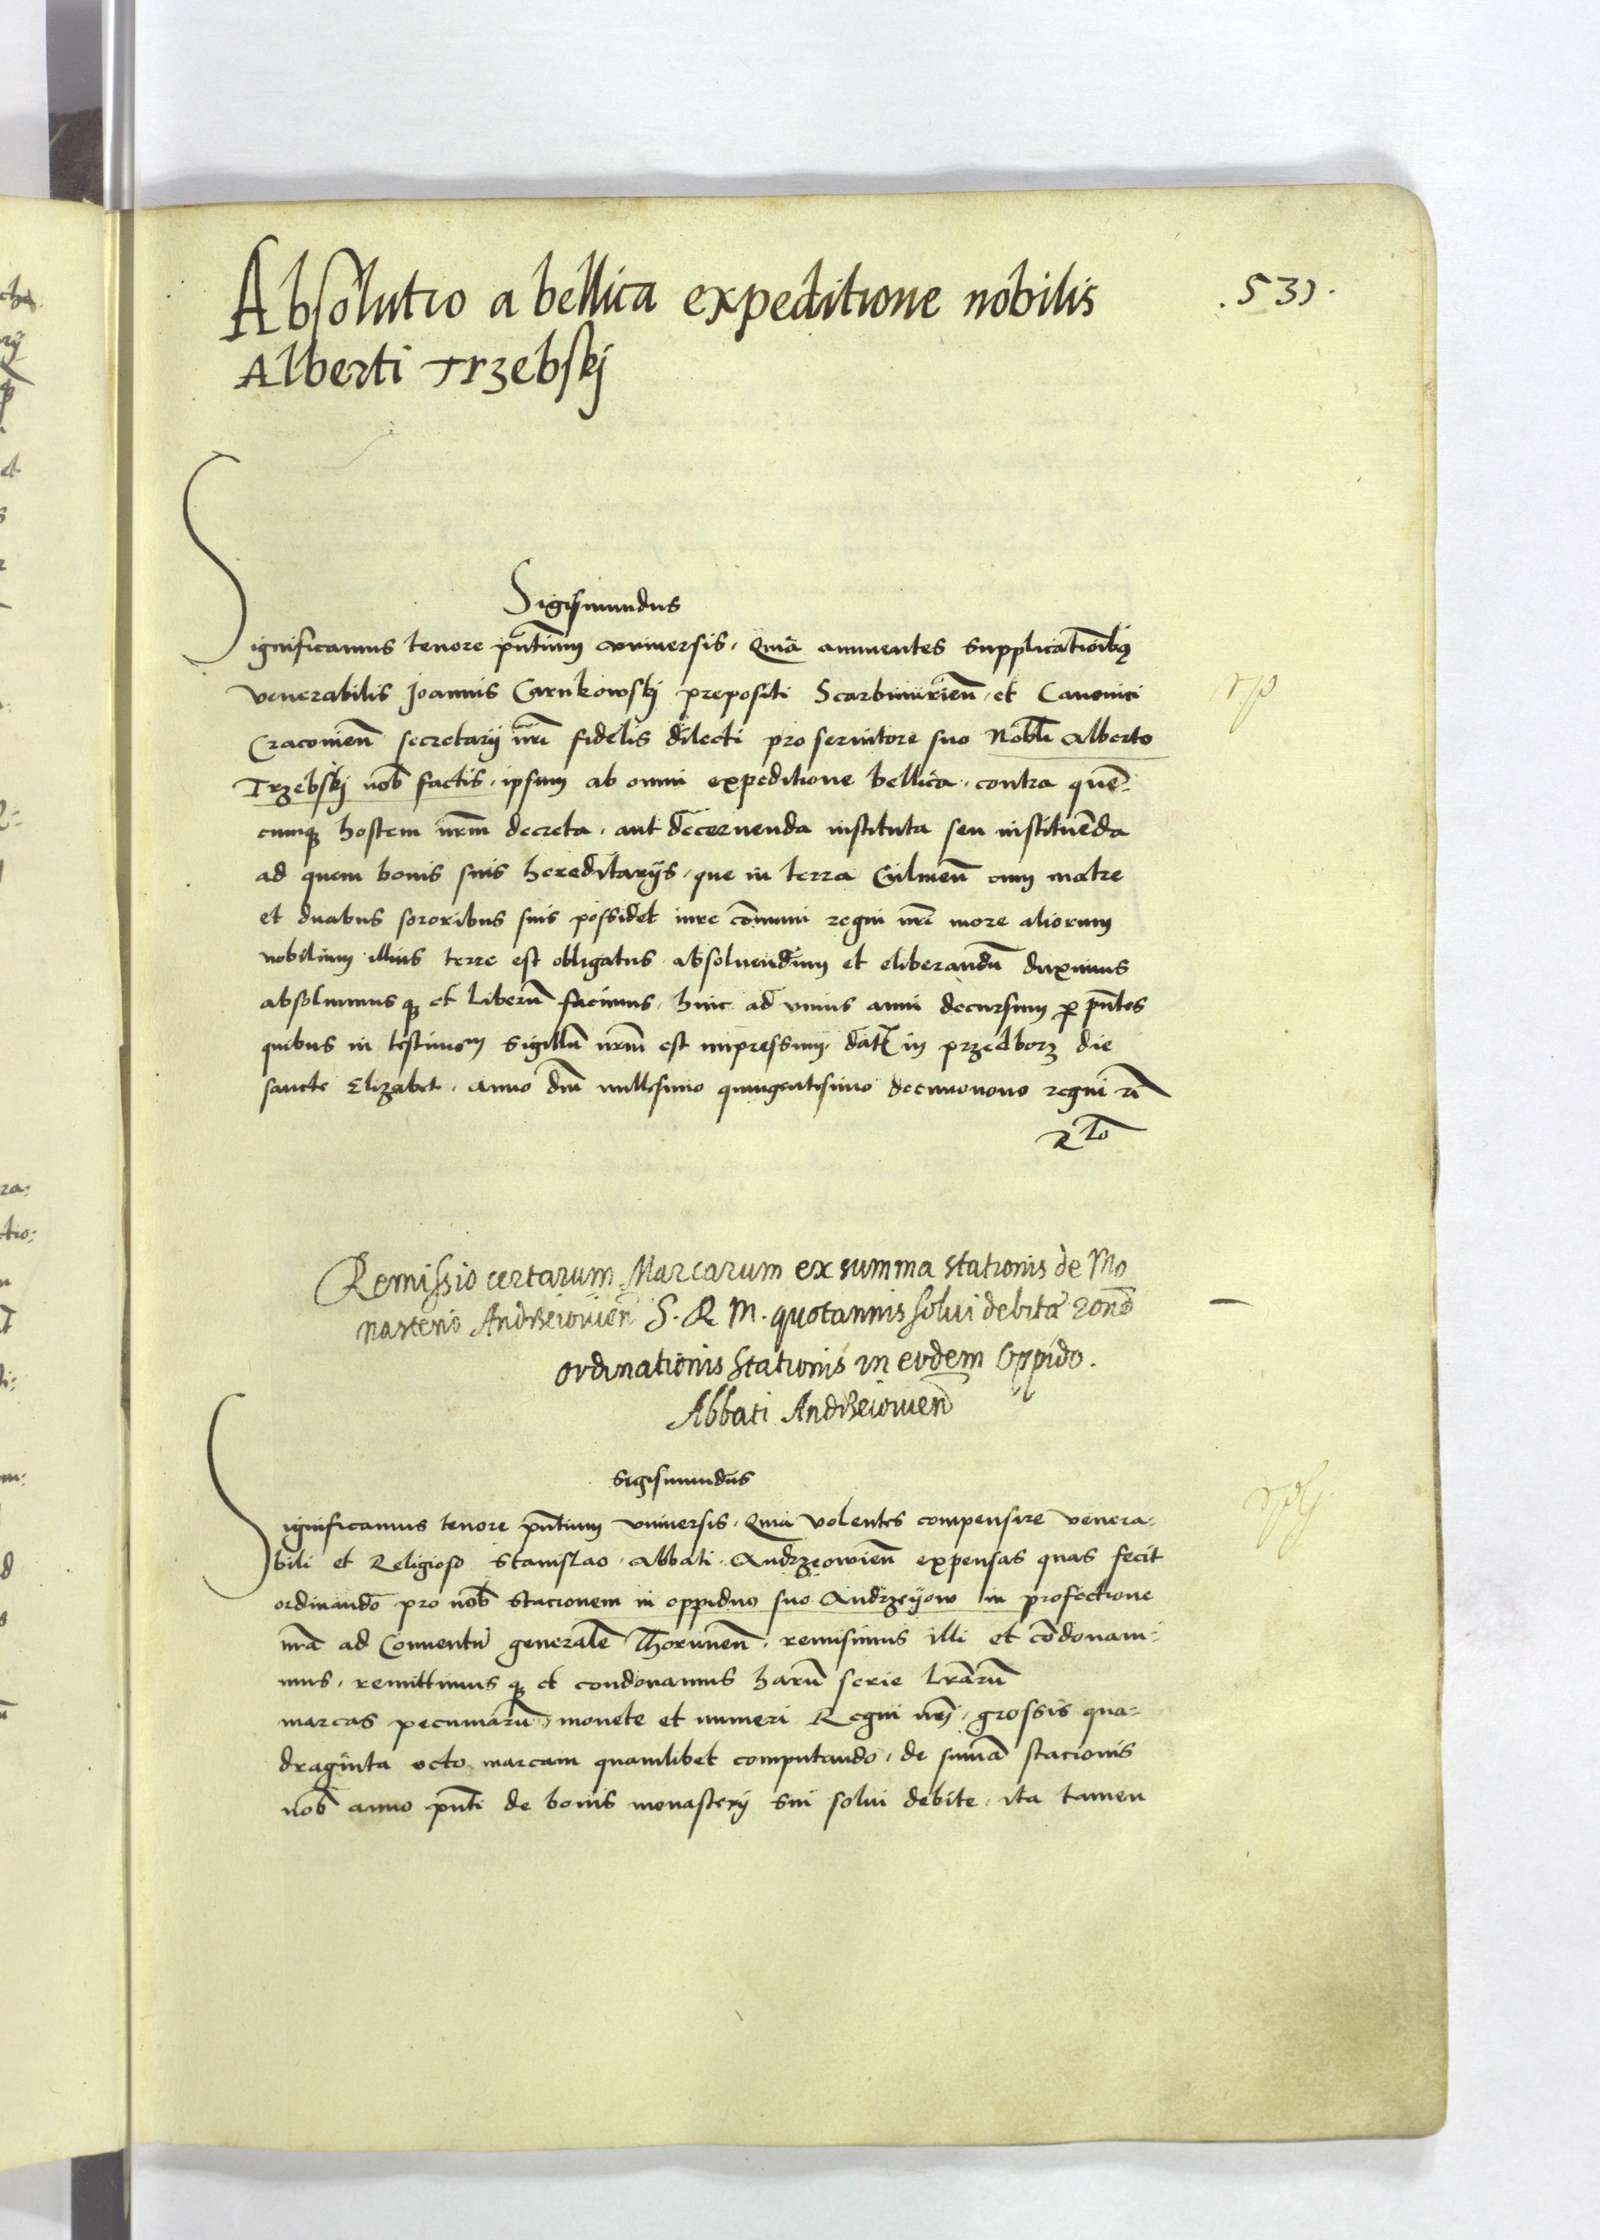 Absolutio a bellica expeditione nobilis
.531.
Alberti Trzebskj
Sigismundus
Significamus tenore pñtium vniuersis, Quia annuentes supplicationibq
venerabilis Joannis Carnkowskj prepositi Scarbimirieñ, et Canonici
Cracouieñ secretarij nrĩ fidelis dilecti pro seruitore suo Nobli Alberto
Trzebskj nob factis, ipsum ab omni expeditione bellica, contra quẽ=
cumqꝫ hostem nrm̃ decreta, aut decernenda instituta seu instituẽda
ad quem bonis suis hereditarijs, que in terra Culmeñ cum matre
et duabus sororibus suis possidet iure cõmuni regni nrĩ more aliorum
nobilium illius terre est obligatus absoluendum et eliberandũ duximus
absoluimusqꝫ et liberũ facimus, hinc ad vnius anni decursum ꝑ pñtes
quibus in testimom sigillũ nrm̃ est impressum, dat in przedborz die
sancte Elizabet, anno dñi millesimo quingentesimo decimonono regni ñ
R to
Remissio certarum Marcarum ex summa stationis de Mo
nasterio Andrzeiouieñ S. R. M. quotannis solui debita rone
ordinationis stationis in eodem Oppido.
Abbati Andrzeiouieñ
Sigismundus
Significamus tenore pñtium vniuersis, Quia volentes compensare venera=
bili et Religioso Stanislao, abbati Andrzeowieñ expensas quas fecit
ordinando pro nob stacionem in oppiduo suo Andrzeyow in profectione
nrã ad Conuentũ generalẽ Thoruneñ, remisimus illi et cõdonaui=
mus, remittimusqꝫ et condonamus harũ serie lrãrũ
marcas pecuniarũ, monete et numeri Regni nrĩ, grossis qua=
draginta octo marcam quamlibet computando, de sum̃a stacionis
nob anno pñti de bonis monasterij sui solui debite, ita tamen